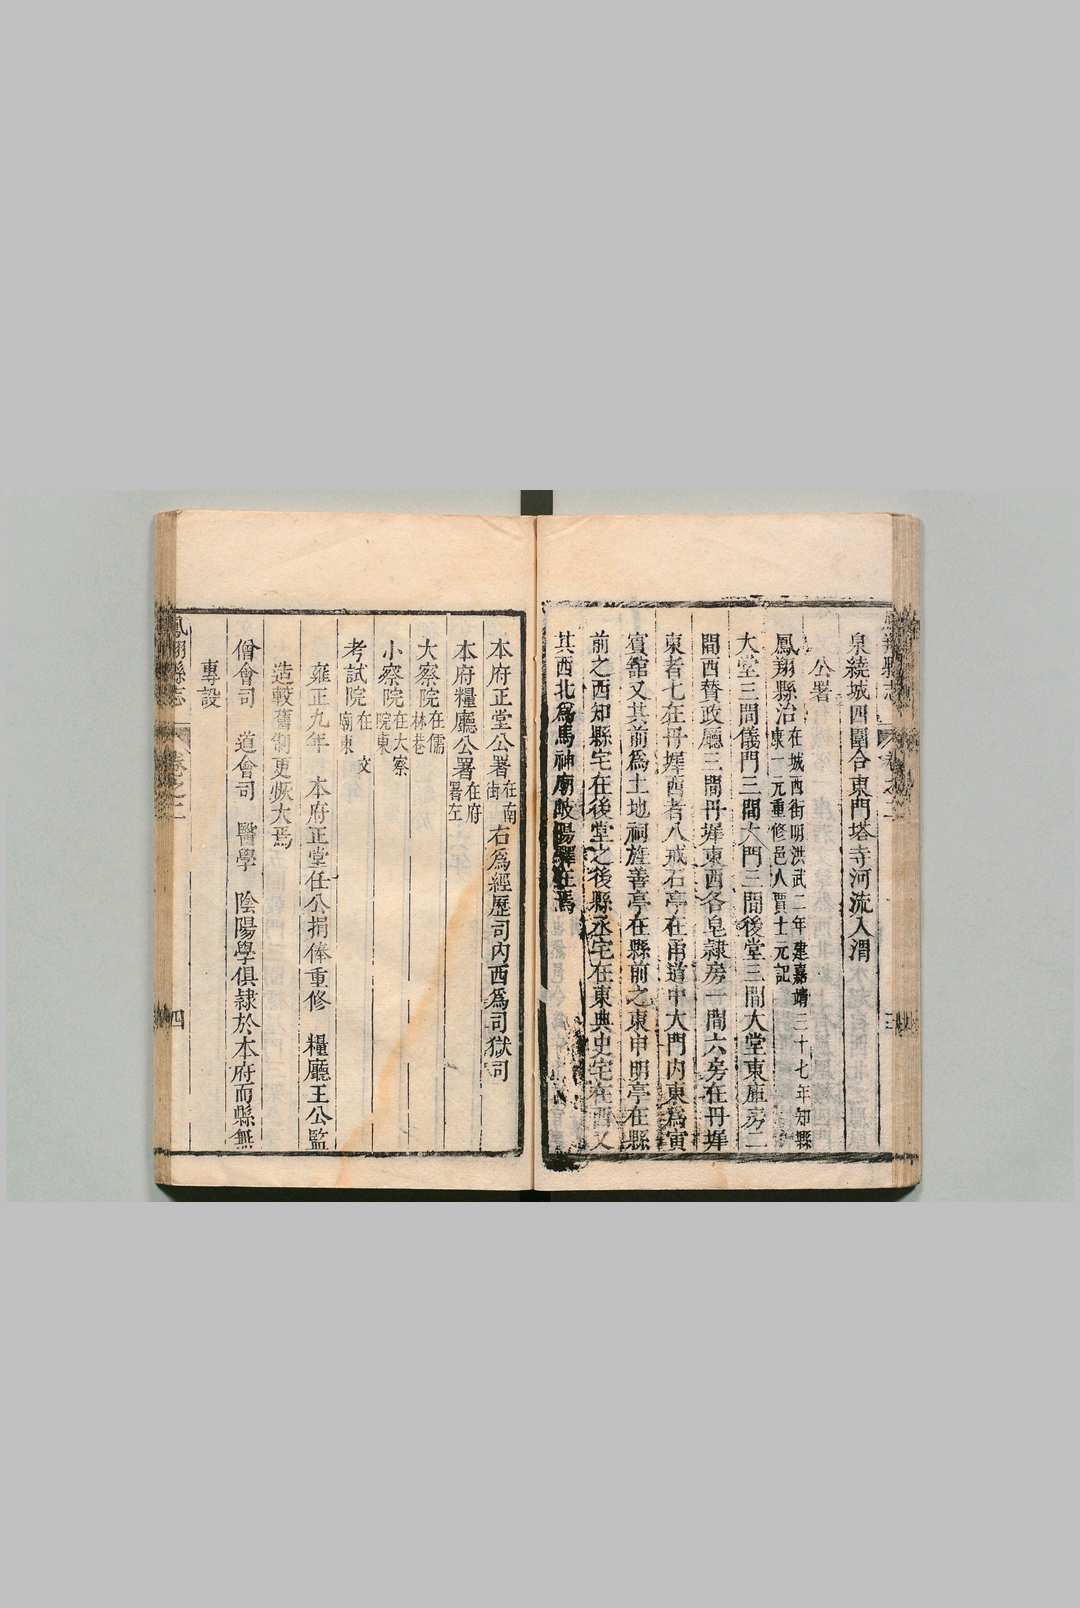 泉繞城四圍合東門塔寺河流入渭
公署
鳳翔縣治在城西街明洪武二年建嘉靖三十七年知縣
東一元重修邑人賈士元記
大堂三間儀門三間大門三間後堂三間大堂東庫房二
間西贊政廳三間丹墀東西各皂隷房一間六房在丹墀
東者七在丹墀西者八戒石亭在甬道中大門內東爲寅
賓舘又其前爲土地祠旌善亭在縣前之東申明亭在縣
前之西知縣宅在後堂之後縣丞宅在東典史宅在西又
其西北爲馬神廟岐陽驛在焉
本府正堂公署在南街右爲經歷司內西爲司獄司
本府糧廳公署在府署左
大察院在儒林巷
小察院在大察院東
考試院在文廟東
雍正九年本府正堂任公捐俸重修 糧廳王公監
造較舊制更恢大焉
僧會司 道會司 醫學 陰陽學俱隷於本府而縣無
專設
鳳翔縣志 卷之二 四